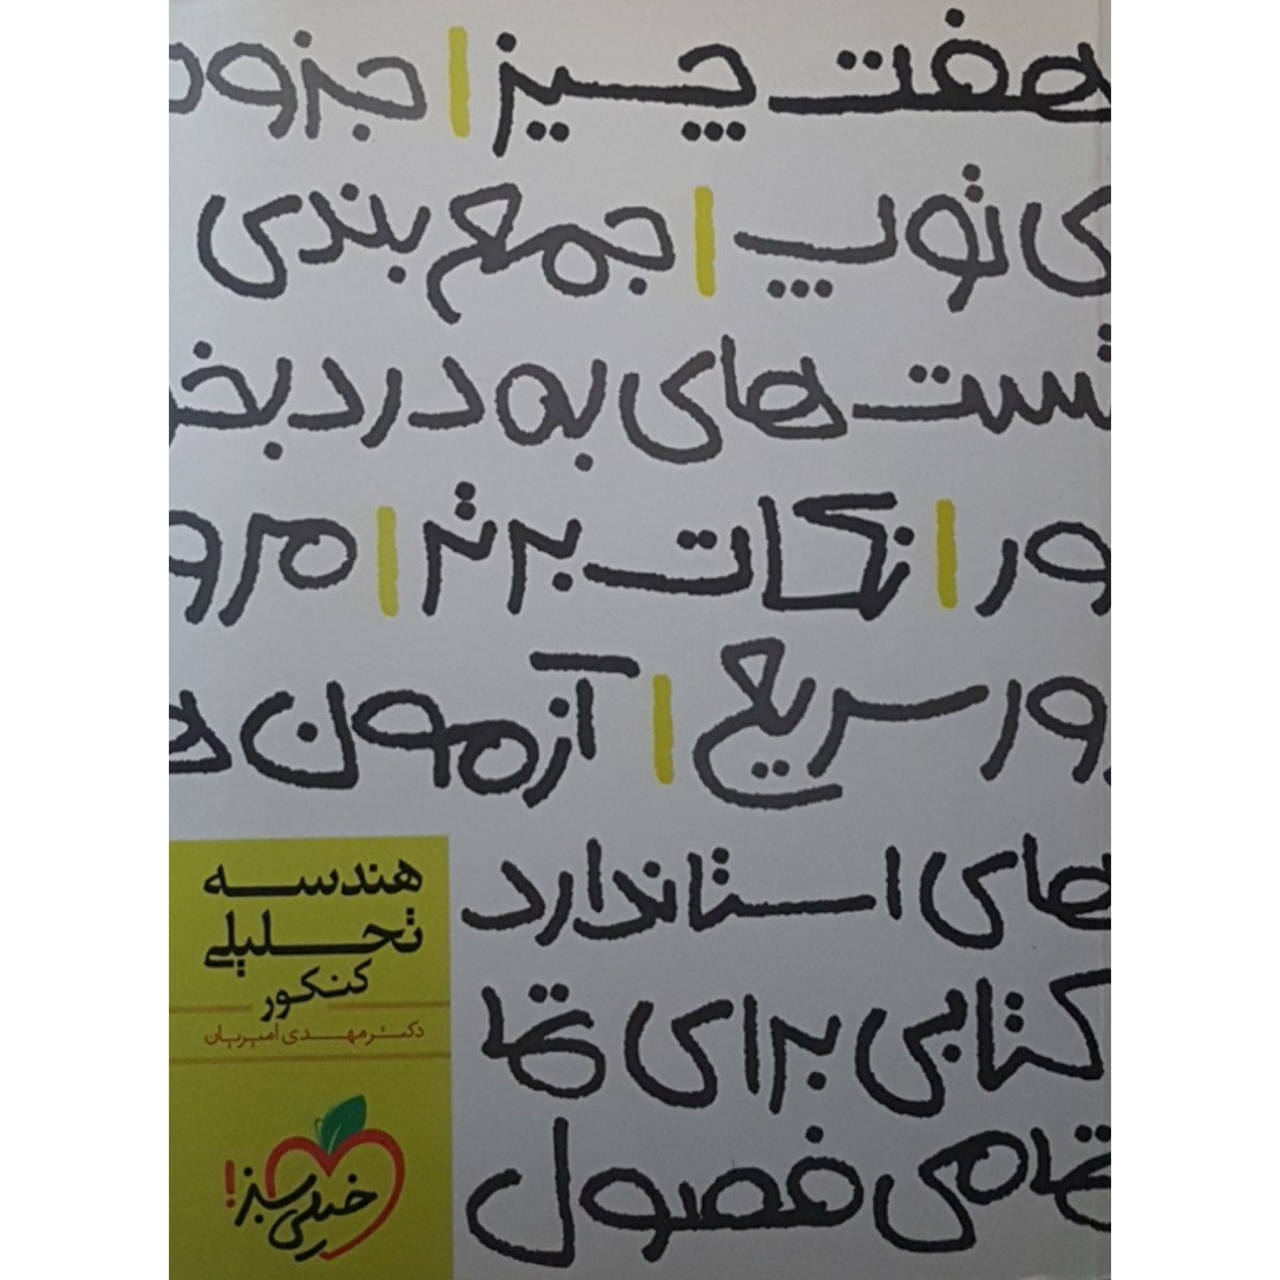 هفت چیز | جزوه
ی توپ | جمع بندی
تست های به درد بخ
ور | نکات برتر | مرو
ور سریع | آزمون ه
های استاندارد
کتابی برای تما
تمامی فصول
هندسه
تحلیلی
کنکور
دکتر مهدی امیریان
خیلی سبز!